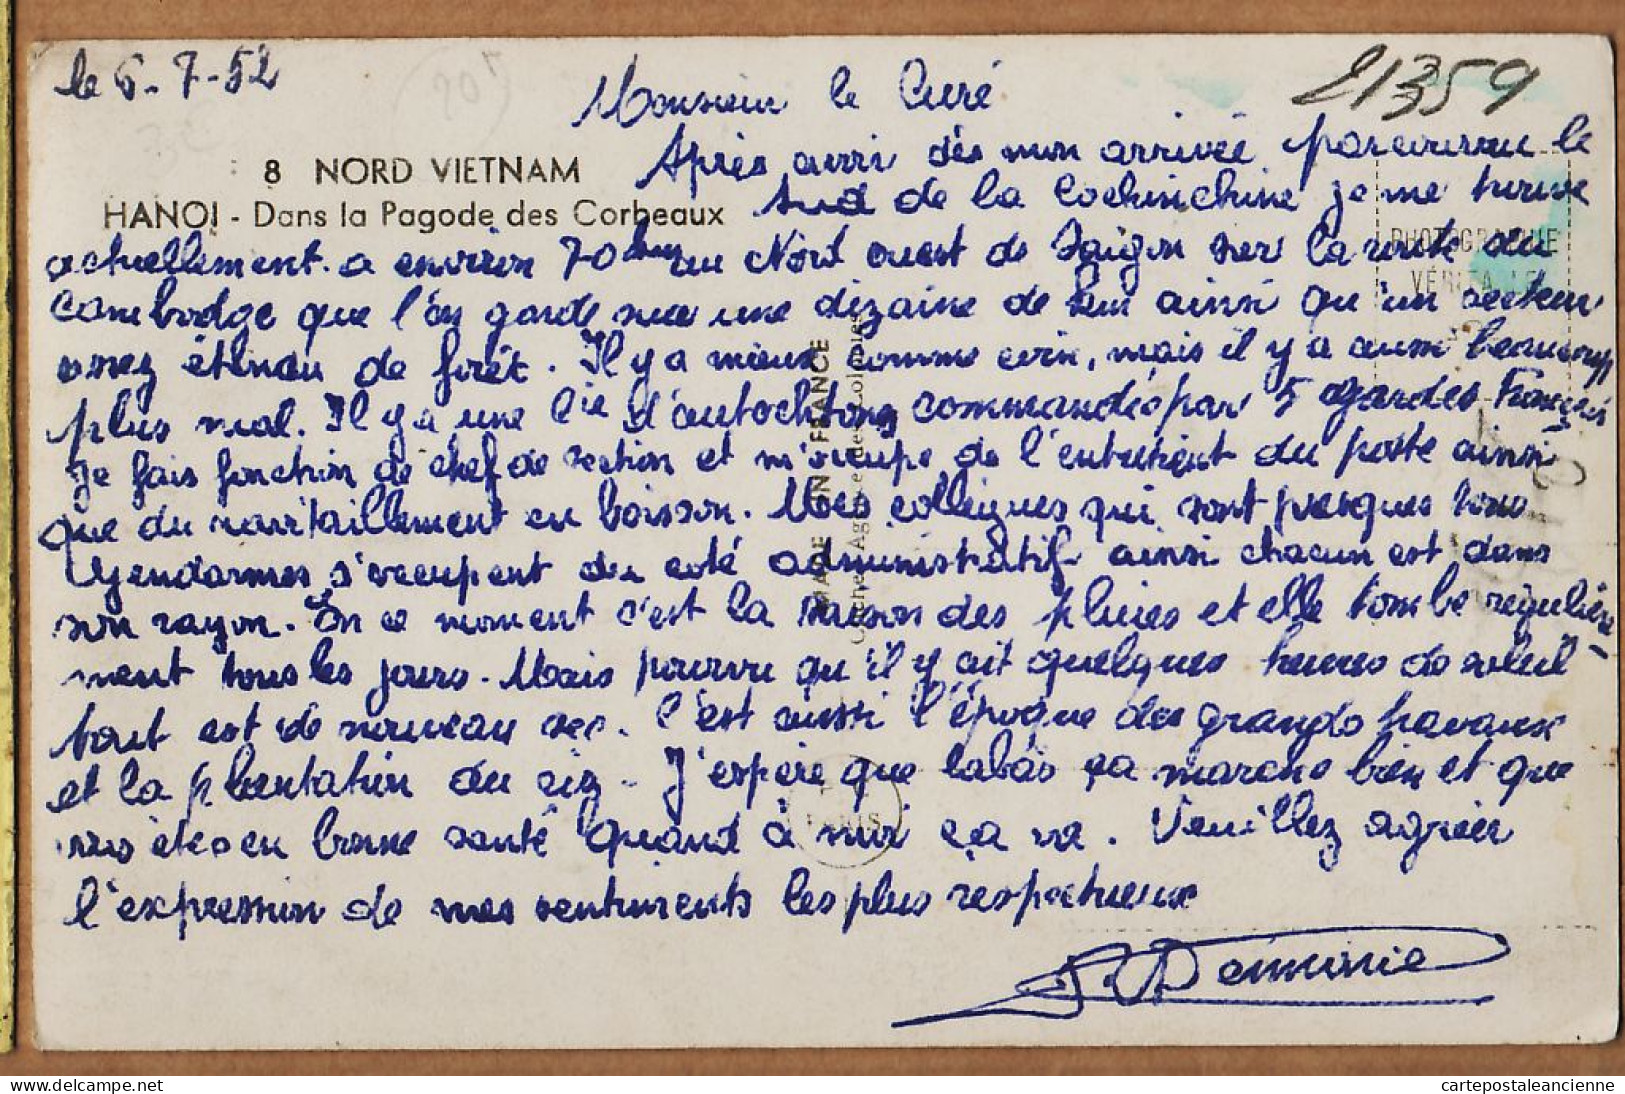 le 6-7-52
21359
Monsieur le Curé
8 NORD VIETNAM
HANOI - Dans la Pagode des Corbeaux
PHOTOGRAPHIE
VÉRITABLE
Après avoir dès mon arrivée parcouru le
Sud de la Cochinchine je me trouve
actuellement a environ 70 km au Nord ouest de Saigon sur la route du
Cambodge que l'on garde sur une dizaine de km ainsi qu'un secteur
assez étendu de forêt. Il y a mieux comme coin, mais il y a aussi beaucoup
plus mal. Il y a une Cie d'autochtones commandés par 5 gardes Français
Je fais fonction de chef de section et m'occupe de l'entretient du poste ainsi
que du ravitaillement en boisson. Mes collègues qui sont presques tous
Gendarmes s'occupent du coté administratif ainsi chacun est dans
son rayon. En ce moment c'est la saison des pluies et elle tombe régulière-
ment tous les jours. Mais pourvu qu'il y ait quelques heures de soleil
tout est de nouveau sec. C'est aussi l'époque des grands travaux
et la plantation du riz - J'espère que labas ça marche bien et que
vous êtes en bonne santé quand à moi ça va. Veuillez agréer
l'expression de mes sentiments les plus respectueux
MADE IN FRANCE
PARIS
cartepostaleancienne